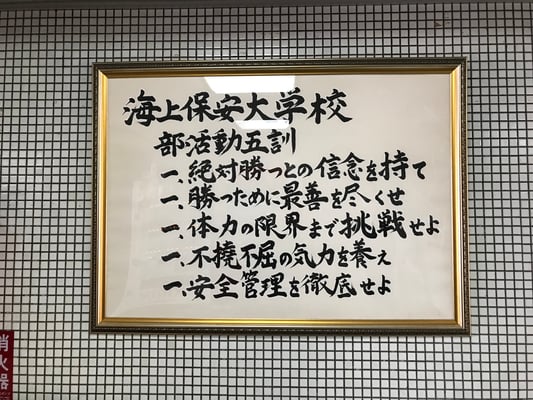 海上保安大学校
部活動五訓
一、絶対勝つとの信念を持て
一、勝つために最善を尽くせ
一、体力の限界まで挑戦せよ
一、不撓不屈の気力を養え
一、安全管理を徹底せよ
消火器